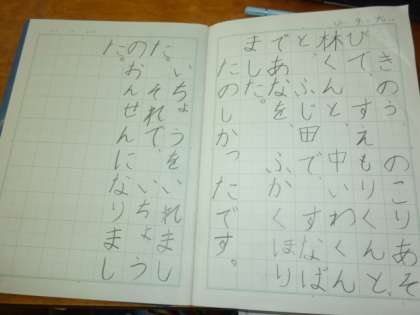 きのう、のこりあそ
びで、すえもりくんと、
林くんと、中いわくん
と、ふじ田で、すなば
であなを、ふかくほり
ました。
たのしかったです。
いちょうをいれまし
た。それで、いちょう
のおんせんになりまし
た。